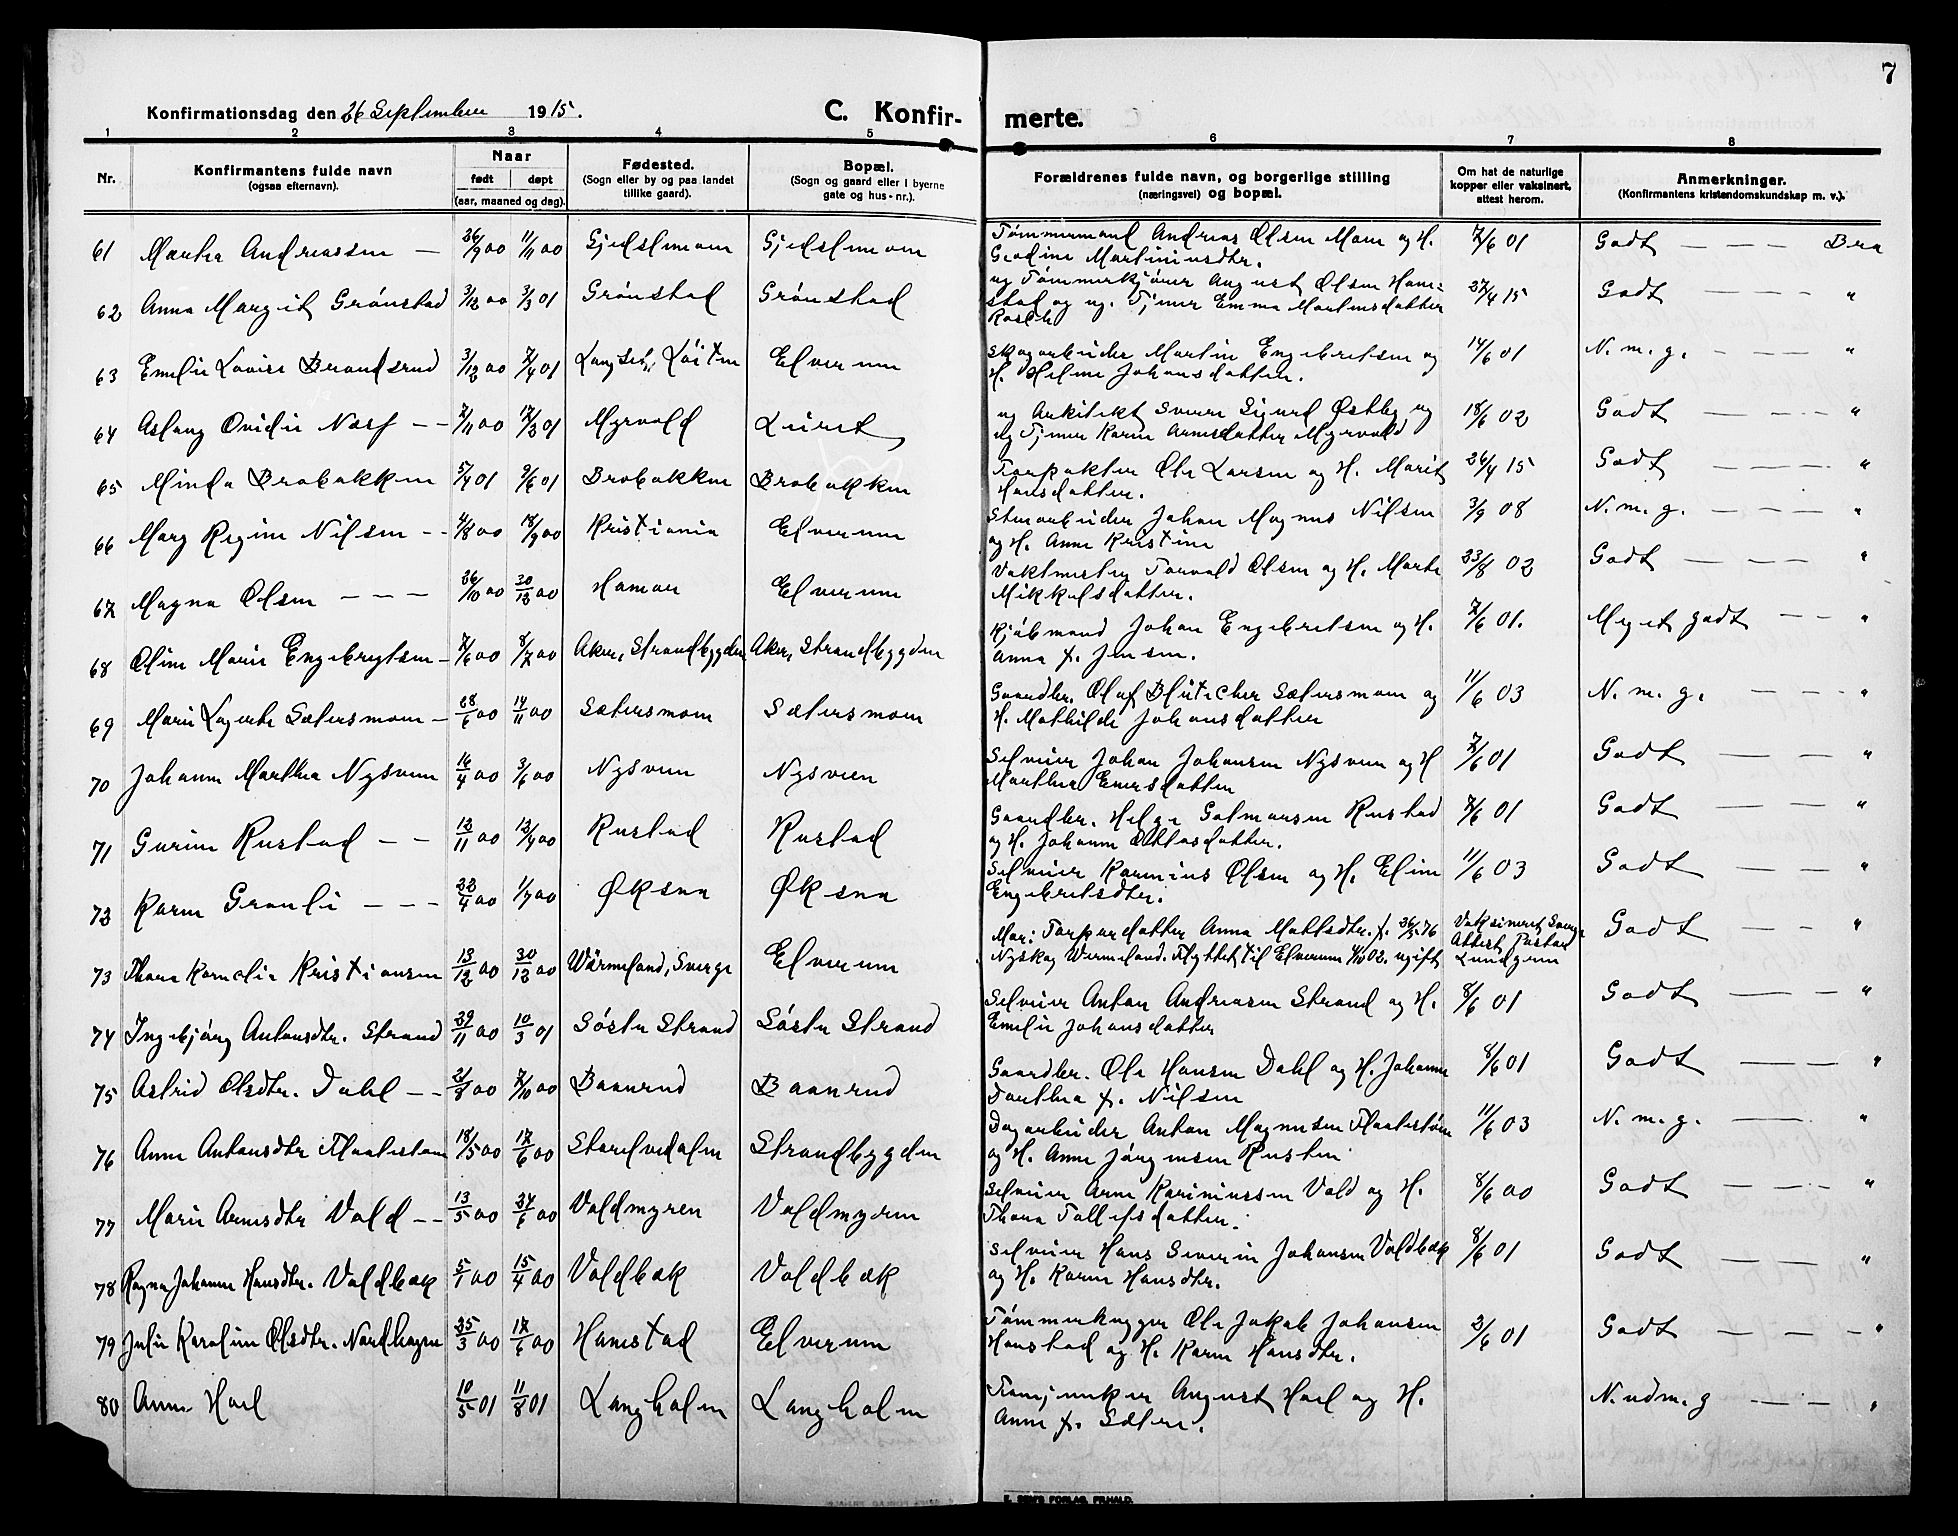 7
Konfirmationsdag den 26 September 1915.
C. Konfir- merte.
1 2 3 4 5 6 7 8
Nr. Konfirmantens fulde navn (ogsaa efternavn). Naar født døpt (aar, maaned og dag). Fødested. (Sogn eller by og paa landet tillike gaard). Bopæl. (Sogn og gaard eller i byerne gate og hus-nr.). Forældrenes fulde navn, og borgerlige stilling (næringsvei) og bopæl. Om hat de naturlige kopper eller vaksinert, attest herom. Anmerkninger. (Konfirmantens kristendomskundskap m. v.).
61 Martha Andreassen — 26/9 00 11/11 00 Gjedslmoem Gjedslmoem Tømmermand Andreas Olsen Moem og H. 7/6 01 Godt — — — Bra
Martiniusdtr.
62 Anna Margit Grønstad 3/12 00 3/3 01 Grønstad Grønstad ug Tømmerkjører August Olsen Hans= 27/4 15 Godt — — — "
stad og ug. Tjener Emma Martinsdatter
63 Emelie Lovise Brandsrud 3/12 00 7/4 01 Løiten Elverum Skogarbeider Martin Engebretsen og 14/6 01 N. m. g. — — — "
H. Helene Johansdatter.
64 Aslaug Ovidie Næss — — 7/11 00 17/3 01 Myrvold Leiret ug Arkitekt Sverre Sigurd Østby og 18/6 02 Godt — — — "
ug Tjener Karen Arnesdatter Myrvold
65 Minda Brobakken 5/4 01 9/6 01 Brobakken Brobakken Forpakter Ole Larsen og H. Marit 26/4 15 Godt — — — "
Hansdatter.
66 Mary Regine Nilsen — — 4/8 00 18/9 00 Kristiania Elverum Stenarbeider Johan Magnus Nilsen 3/9 08 N. m. g. — — — "
og H. Anne Kristine
67 Magna Olsen — — — 26/10 00 30/12 00 Hamar Elverum Vaktmester Torvald Olsen og H. Marte 23/8 02 Godt — — — "
Mikkelsdatter.
68 Oline Marie Engebrgtsen — 7/6 00 8/7 00 Aker, Strandbygden Aker, Strandbygden Kjøbmand Johan Engebretsen og H. 7/6 01. Meget godt — — "
Anna f. Jensen.
69 Marie Lagerta Sætersmoen — 28/6 00 14/11 00 Sætersmoen Sætersmoen Gaardbr. Olaf Bløtecher Sætersmoen og 11/6 03 N. m. g. — — — "
H. Mathilde Johansdatter
70 Johanne Marthea Nysveen 16/4 00 3/6 00 Nysveen Nysveen Selveier Johan Johansen Nysveen og H 7/6 01 Godt — — — "
Marthea Enersdatter
71 Gurine Rustad — — 12/11 00 Rustad Rustad Gaardbr. Helge Rustad 7/6 01 Godt — — — "
og H. Johanne Ottosdatter.
72 Karen Granli — — — 22/4 00 1/7 00 Øksna Øksna Selveier Karinius Olsen og H. Eline 11/6 03 Godt — — — "
Engebretsdtr.
73 Thora Kornelia Kristiansen 13/12 00 30/12 00 Wärmeland, Sverge Elverum Mor: Torpardatter Anna Mattsdtr. f. 26/5 76 Vaksineret Sverge Godt — — "
Nyskog Wermeland. Flyttet til Elverum 4/10 02. ugift Attest Pastor
Lundgren
74 Ingebjørg Antonsdtr. Strand 29/11 00 10/3 01 Søstu Strand Søstu Strand Selveier Anton Andreasen Strand og H. 8/6 01 Godt — — "
Emelie Johansdatter
75 Astrid Olsdtr. Dahl — — 21/8 00 7/10 00 Baanrud Baanrud Gaardbr. Ole Hansen Dahl og H. Johanne 8/6 01 Godt — — "
Dorthea f. Nilsen
76 Anne Antonsdtr 18/5 00 17/6 00 Strandbygden Dagarbeider Anton Magnusen 11/6 03 N. m. g. — — "
og H. Anne Jørgensen
77 Marie Arnesdtr Vold — — 13/5 00 24/6 00 Voldmyren Voldmyren Selveier Arne Kariniussen Vold og H. 8/6 00 Godt — — — "
Thora Tollefsdatter.
78 Ragna Johanne Hansdtr. Voldbæk 5/1 00 15/4 00 Voldbæk Voldbæk Selveier Hans Severin Johansen Voldbæk 8/6 01 Godt — — "
og H. Karen Hansdtr.
79 Julie Karoline Olsdtr. Nordhagen 25/3 00 17/6 00 Hanstad Elverum Tømmerhugger Ole Jakob Johansen 2/6 01 Godt — — — "
Hanstad og H. Karen Hansdtr.
80 Anne Hoel 10/5 01 11/8 01 Langholm Langholm Fanejunker August Hoel og H. N. udm. g — — "
Anne f. Sætre.